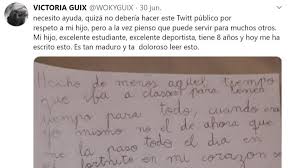 VICTORIA GUIX @WOKYGUIX · 30 jun.
necesito ayuda, quizá no debería hacer este Twitt público por
respeto a mi hijo, pero a la vez pienso que puede servir para muchos otros.
Mi hijo, excelente estudiante, excelente deportista, tiene 8 años y hoy me ha
escrito esto. Es tan maduro y ta doloroso leer esto.
Hecho de menos aquel tiempo
que iba a classes para tener
tiempo para todo, cuando era
yo mismo no el de ahora que
me la paso todo el dia en
el fortnite en mi corazon se